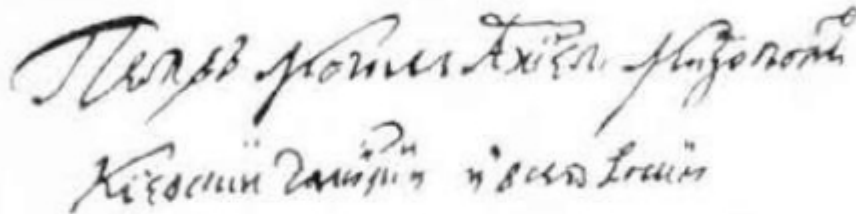 Петръ Могила Архіеп. Митрополит
Кіевскій Галицкій и всея Росіи